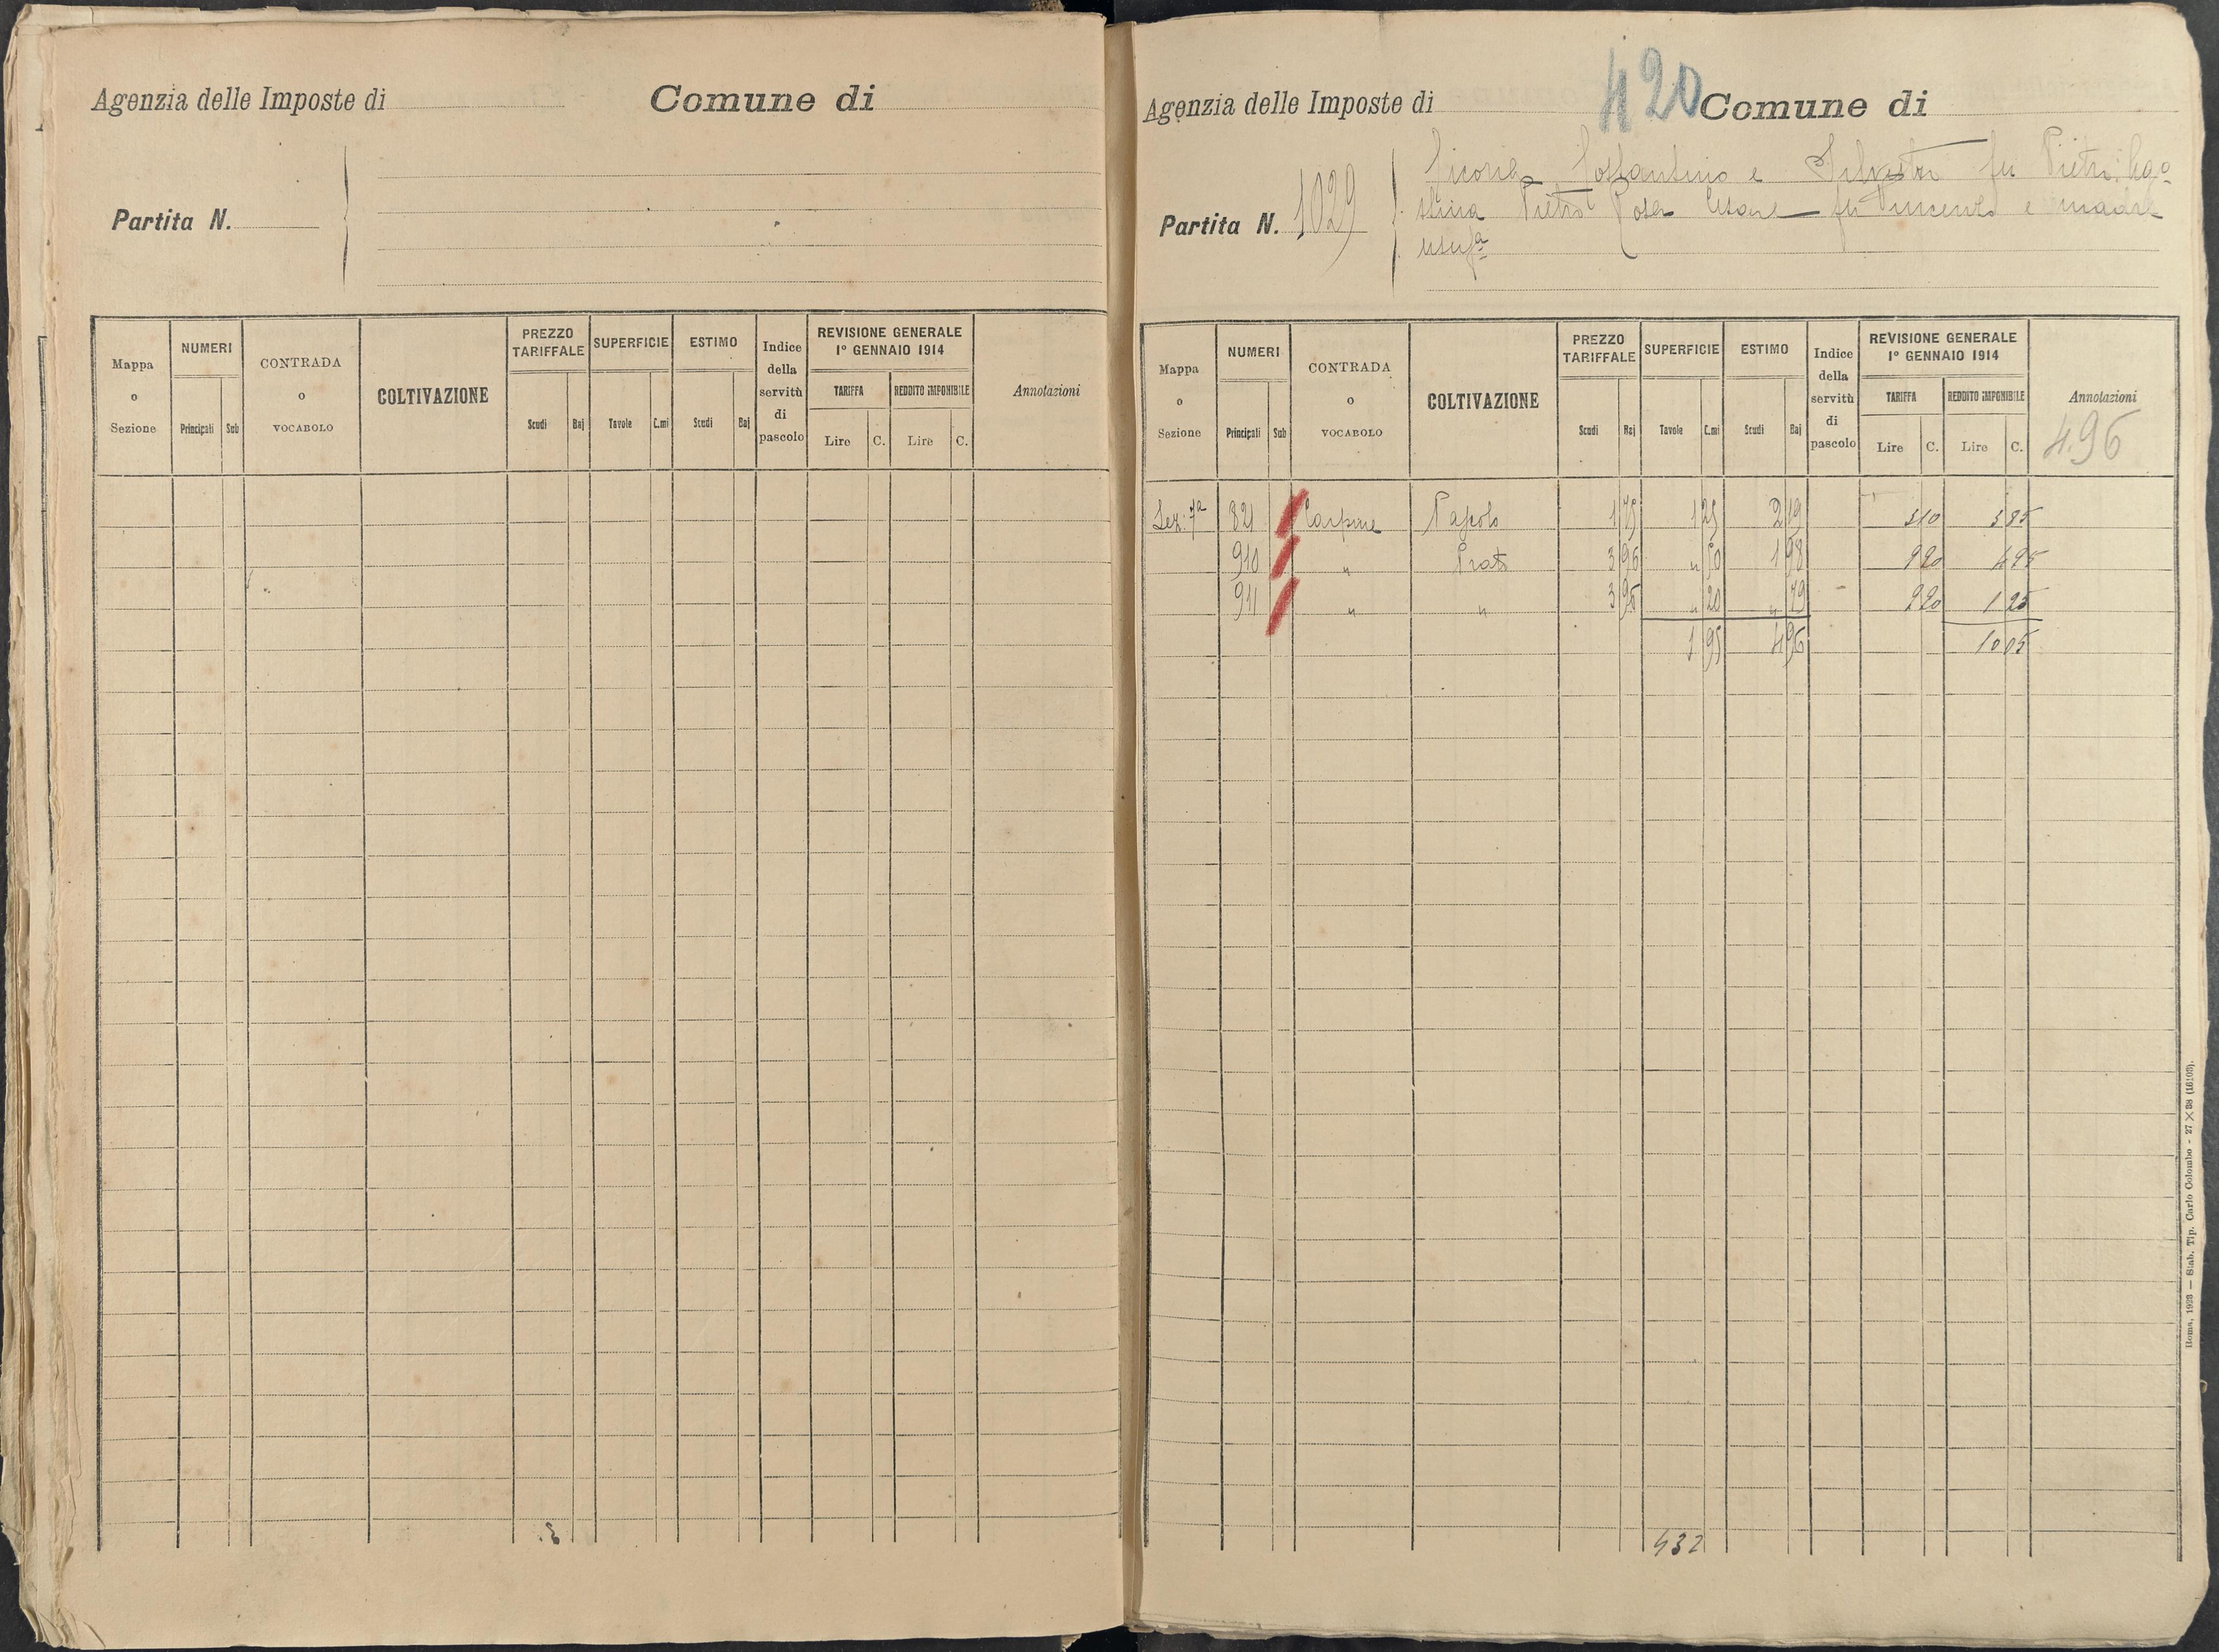 Agenzia delle Imposte di
Comune di
Partita N.
Mappa o Sezione
NUMERI
Principali Sub
CONTRADA o VOCABOLO
COLTIVAZIONE
PREZZO TARIFFALE
Scudi Baj
SUPERFICIE
Tavole C.mi
ESTIMO
Scudi Baj
Indice della servitù di pascolo
REVISIONE GENERALE
1° GENNAIO 1914
TARIFFA
REDDITO IMPONIBILE
Lire C. Lire C.
Annotazioni
420
Agenzia delle Imposte di
Comune di
Partita N. 1029
Costantino e Silvestro fu Pietro: Ago=
stina Pietro Rosa Cesare fu Vincenzo e madre
usufa
Mappa o Sezione
NUMERI
Principali Sub
CONTRADA o VOCABOLO
COLTIVAZIONE
PREZZO TARIFFALE
Scudi Baj
SUPERFICIE
Tavole C.mi
ESTIMO
Scudi Baj
Indice della servitù di pascolo
REVISIONE GENERALE
1° GENNAIO 1914
TARIFFA
REDDITO IMPONIBILE
Lire C. Lire C.
Annotazioni
4.96
Sez. 7a 821 Carpine Pascolo 1 75 1 25 2 19 3 10 3 85
910 " Prato 3 96 " 50 1 98 9 90 4 95
911 " " 3 96 " 20 " 79 9 90 1 25
1 95 4 96 10 05
432
Roma, 1923 — Stab. Tip. Carlo Colombo - 27 X 38 (16103).